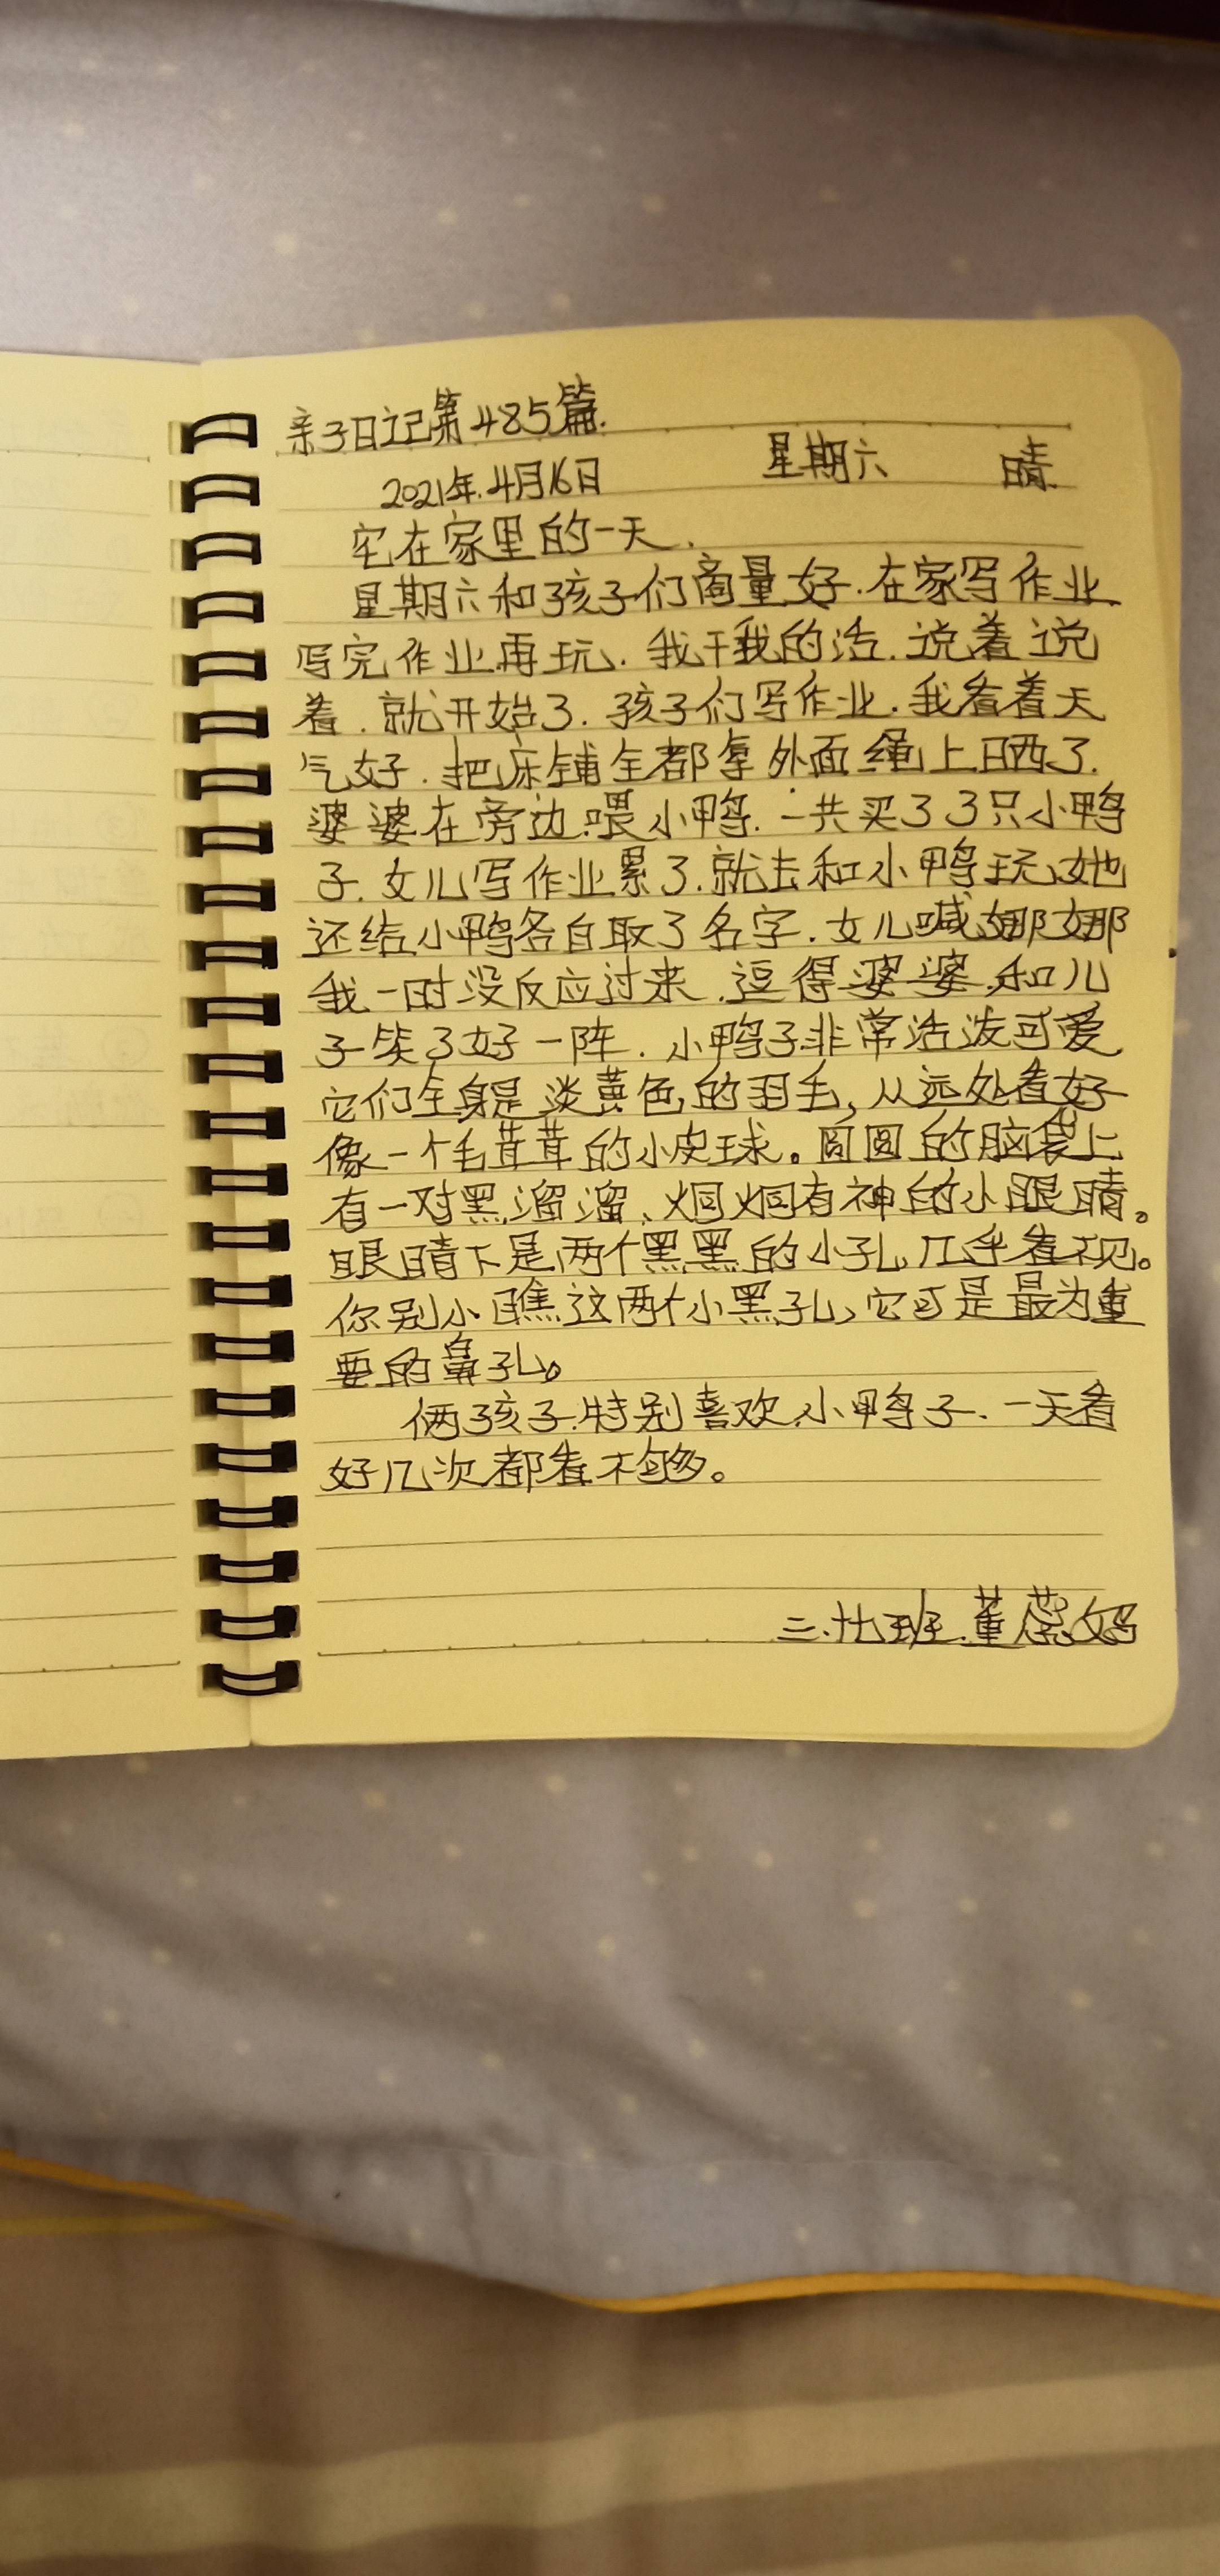 亲子日记第485篇.
2021年.4月16日 星期六 晴.
宅在家里的一天.
星期六和孩子们商量好.在家写作业.
写完作业再玩.我干我的活.说着说
着.就开始了.孩子们写作业.我看着天
气好.把床铺全都拿外面绳上晒了.
婆婆在旁边喂小鸭.一共买了3只小鸭
子.女儿写作业累了.就去和小鸭玩,她
还给小鸭各自取了名字.女儿喊娜娜
我一时没反应过来.逗得婆婆,和儿
子笑了好一阵.小鸭子非常活泼可爱
它们全身是淡黄色的羽毛,从远处看好
像一个毛茸茸的小皮球。圆圆的脑袋上
有一对黑溜溜、炯炯有神的小眼睛。
眼睛下是两个黑黑的小孔,几乎看不见。
你别小瞧这两个小黑孔,它可是最为重
要的鼻孔。
俩孩子特别喜欢小鸭子.一天看
好几次都看不够。
三.十七班.董蕊妈